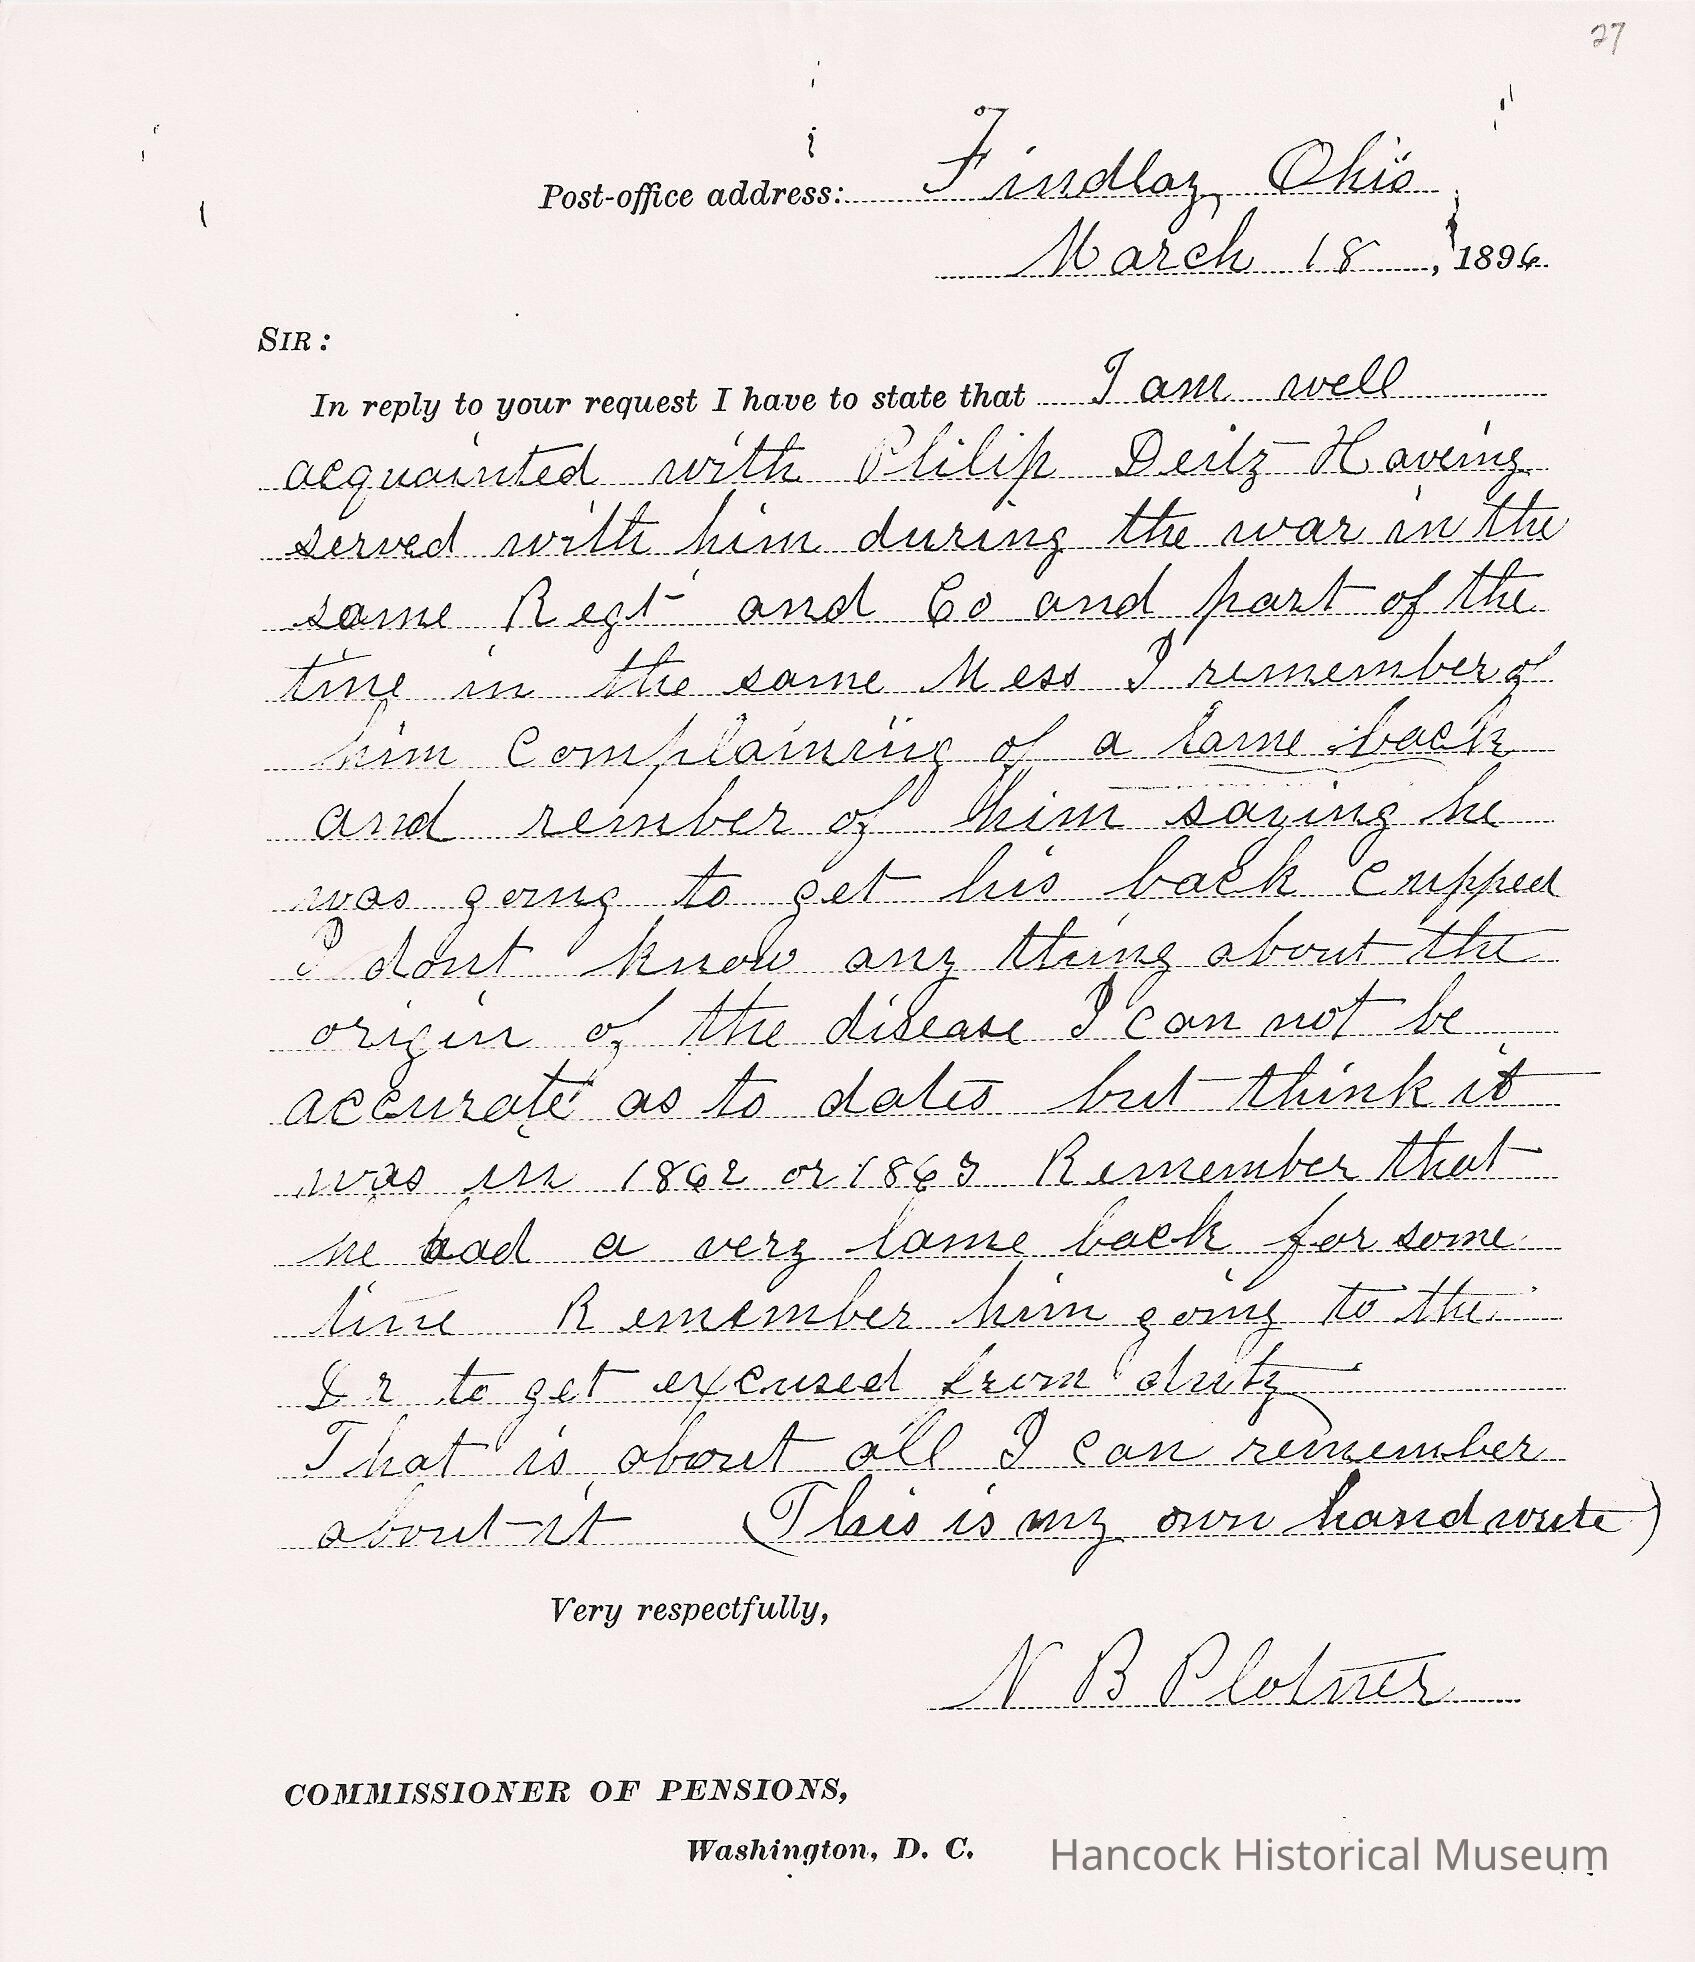 27
Post-office address: Findlay, Ohio
March 18, 1896
SIR:
In reply to your request I have to state that I am well
acquainted with Philip Deitz Haveing
served with him during the war in the
same Regt and Co and part of the
time in the same Mess I remember of
him Complaining of a lame back
and rember of him saying he
was going to get his back Cupped
I dont know any thing about the
origin of the disease I can not be
accurate as to dates but think it
was in 1862 or 1863 Remember that
he had a very lame back for some
time Remember him going to the
Dr to get excused from duty
That is about all I can remember
about it (This is my own hand write)
Very respectfully,
N B Plotner
COMMISSIONER OF PENSIONS,
Washington, D. C.
Hancock Historical Museum